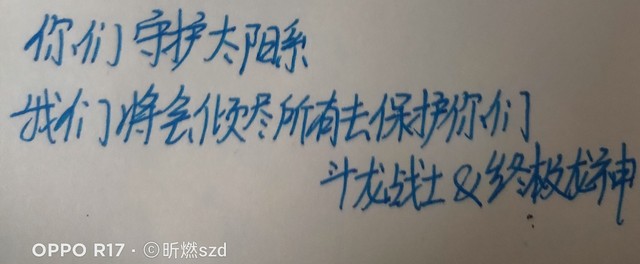 你们守护太阳系
我们将会倾尽所有去保护你们
斗龙战士&终极龙神
OPPO R17 · ©昕燃szd